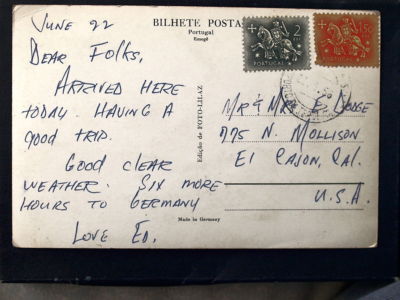 JUNE 22
DEAR FOLKS,
ARRIVED HERE
TODAY. HAVING A
good TRIP.
Good CLEAR
WEATHER. SIX MORE
HOURS TO GERMANY
LOVE ED.
BILHETE POSTA
Portugal
Edição de FOTO-LILAZ
Made in Germany
2
PORTUGAL
1$50
PORTUGAL
MR & MRS E.
N. MOLLISON
EL CAJON, CAL.
U.S.A.